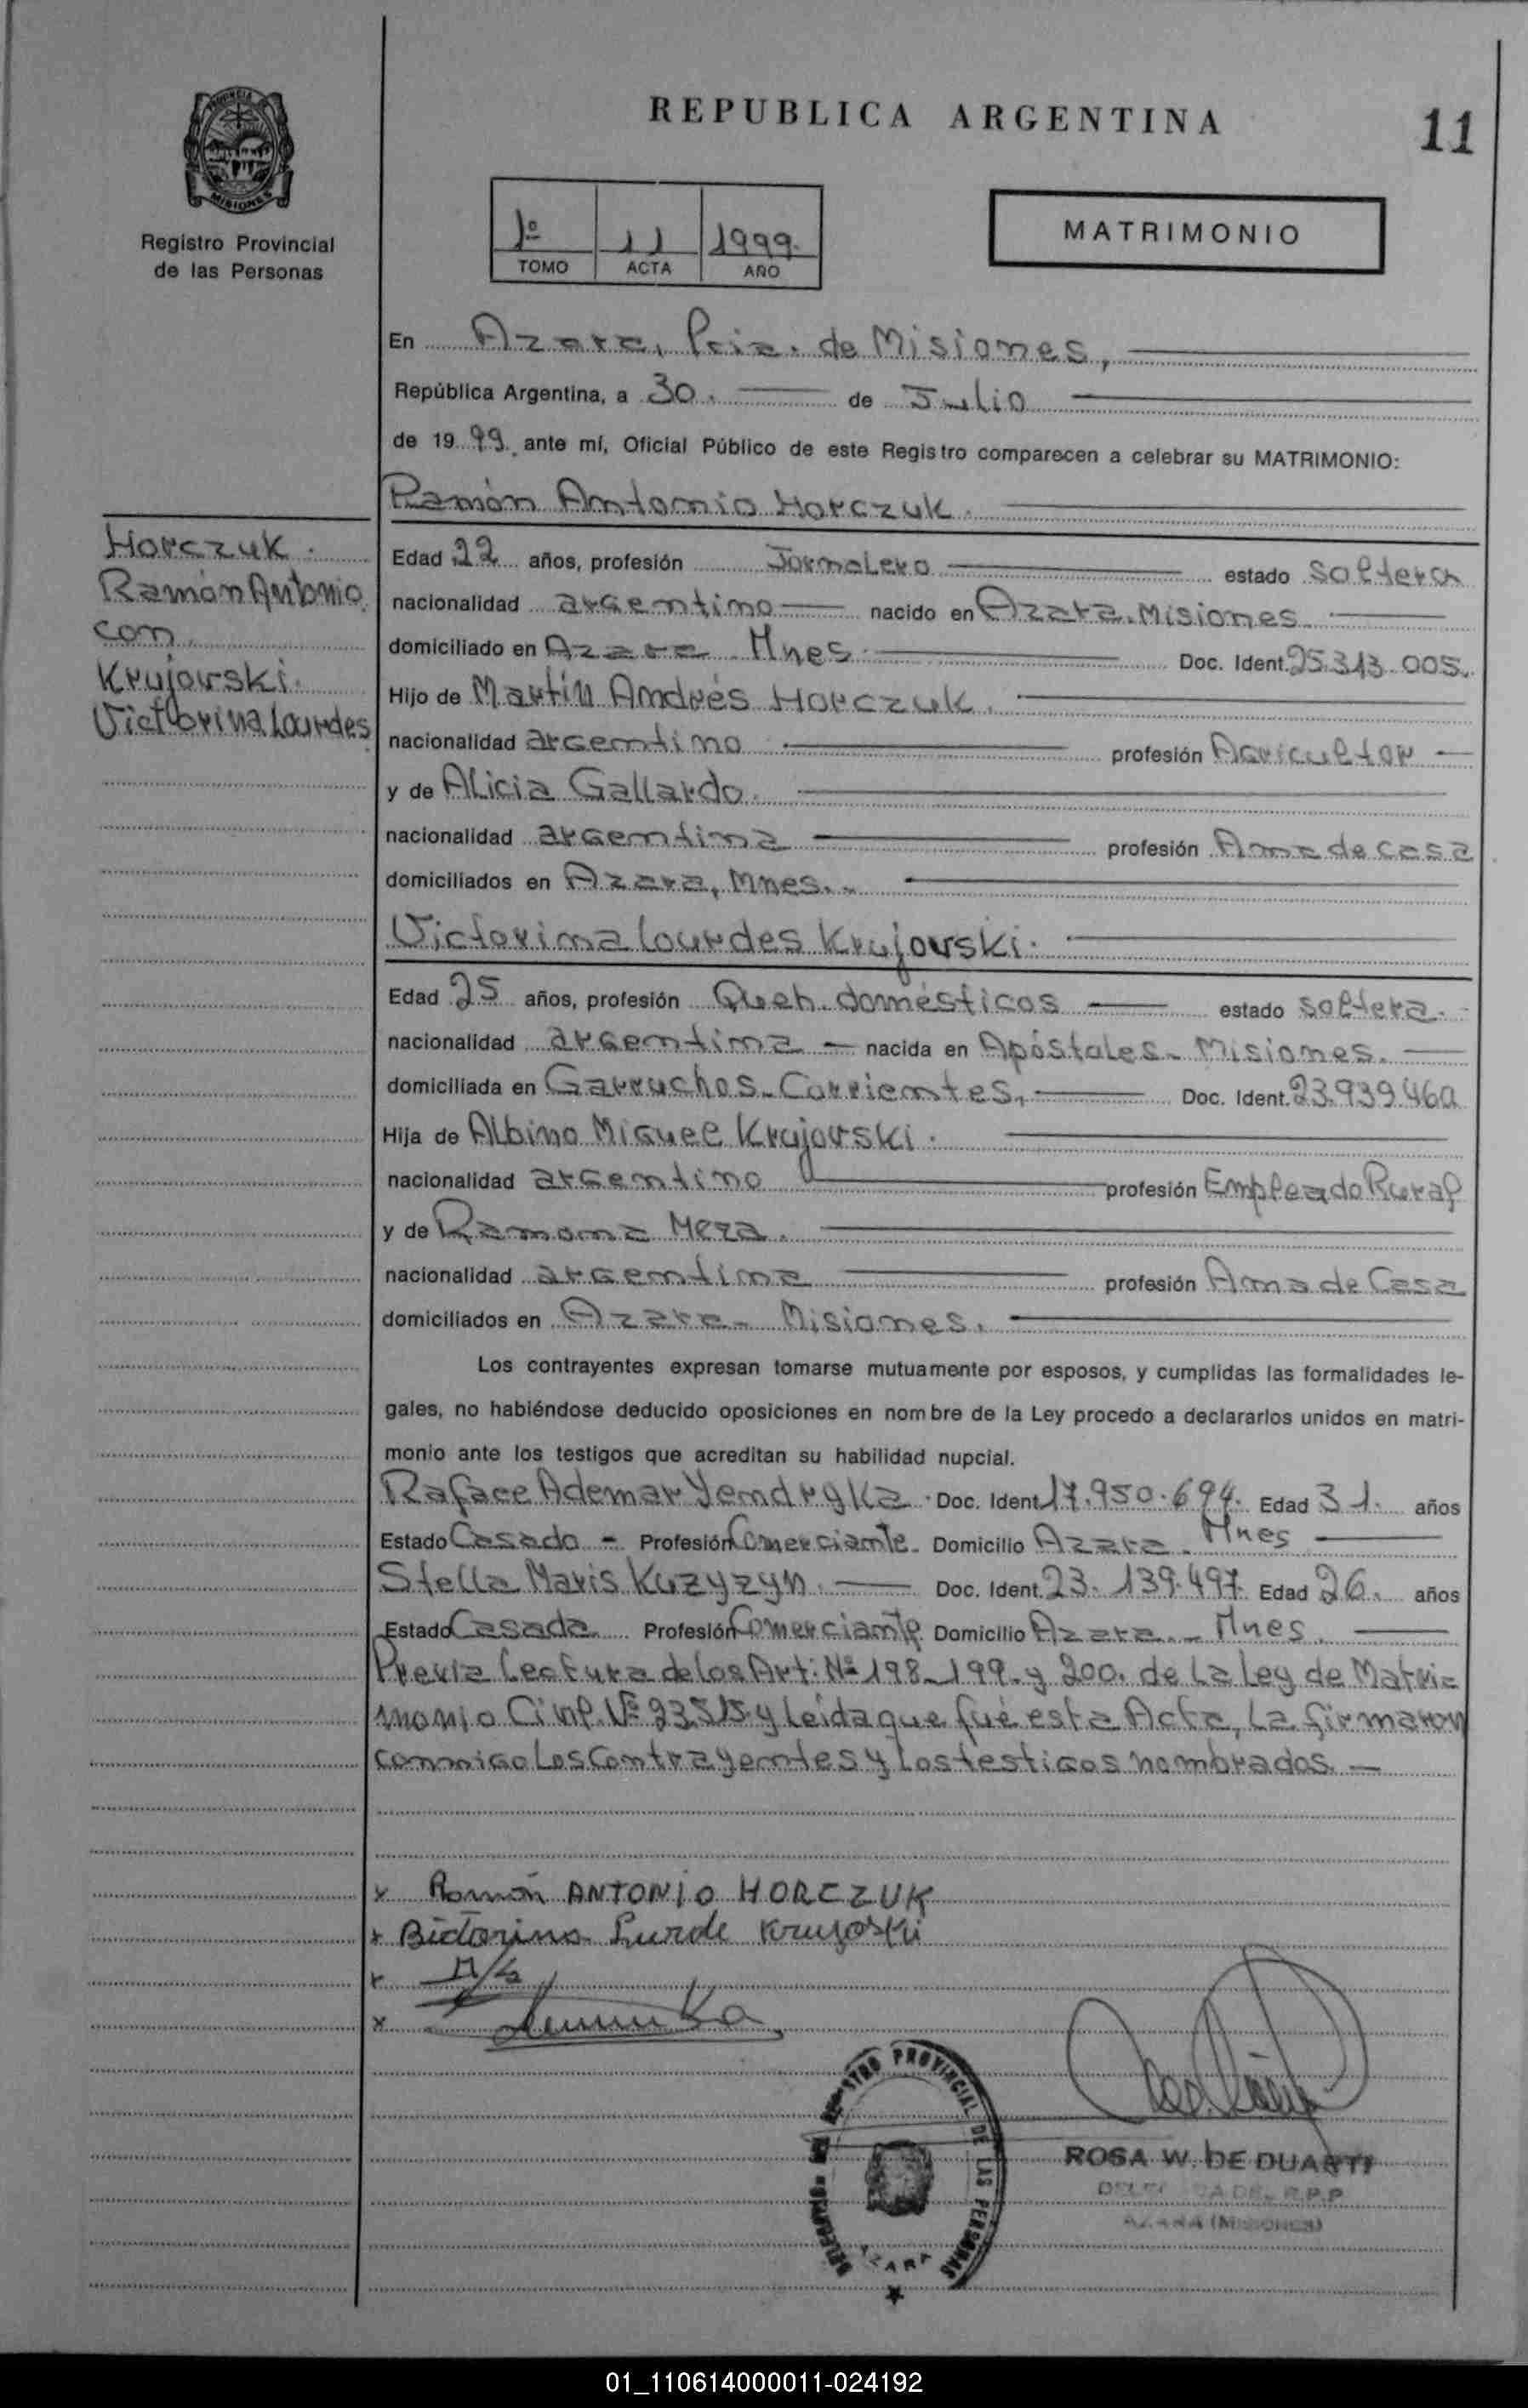 REPUBLICA ARGENTINA
11
PROVINCIA DE
MISIONES
Registro Provincial
de las Personas
1º 11 1999.
TOMO ACTA AÑO
MATRIMONIO
En Azara, Pcia. de Misiones,
República Argentina, a 30. de Julio
de 19 99. ante mí, Oficial Público de este Registro comparecen a celebrar su MATRIMONIO:
Ramón Antonio Horczuk.
Horczuk.
Ramón Antonio.
con
Krujovski.
Victorina Lourdes
Edad 22 años, profesión Jornalero estado soltero
nacionalidad argentino nacido en Azara. Misiones.
domiciliado en Azara Mnes. Doc. Ident. 25.313.005.
Hijo de Martín Andrés Horczuk.
nacionalidad argentino profesión Agricultor
y de Alicia Gallardo.
nacionalidad argentina profesión Ama de casa
domiciliados en Azara, Mnes.-
Victorina Lourdes Krujovski.
Edad 25 años, profesión Queh. domésticos estado soltera.
nacionalidad argentina nacida en Apóstoles - Misiones.
domiciliada en Garruchos - Corrientes, Doc. Ident. 23.939.460
Hija de Albino Miguel Krujovski.
nacionalidad argentino profesión Empleado Rural
y de Ramona Meza.
nacionalidad argentina profesión Ama de Casa
domiciliados en Azara - Misiones.
Los contrayentes expresan tomarse mutuamente por esposos, y cumplidas las formalidades le-
gales, no habiéndose deducido oposiciones en nombre de la Ley procedo a declararlos unidos en matri-
monio ante los testigos que acreditan su habilidad nupcial.
Rafael Ademar Yendryka. Doc. Ident 17.950.694. Edad 31. años
Estado Casado - Profesión Comerciante. Domicilio Azara. Mnes
Stella Maris Kuzyzyn. Doc. Ident. 23.139.497. Edad 26. años
Estado Casada Profesión Comerciante Domicilio Azara.- Mnes.
Previa Lectura de los Art: Nº 198-199. y 200. de la Ley de Matri-
monio Civil Nº 23515 y leída que fué esta Acta, la firmaron
conmigo los Contrayentes y los testigos nombrados. -
x Ramón ANTONIO HORCZUK
x Bictorina Lurde Krujoski
x
x
REGISTRO PROVINCIAL DE LAS PERSONAS
AZARA
ROSA W. DE DUARTE
DELEGADA DEL R.P.P
AZARA (MISIONES)
01_110614000011-024192